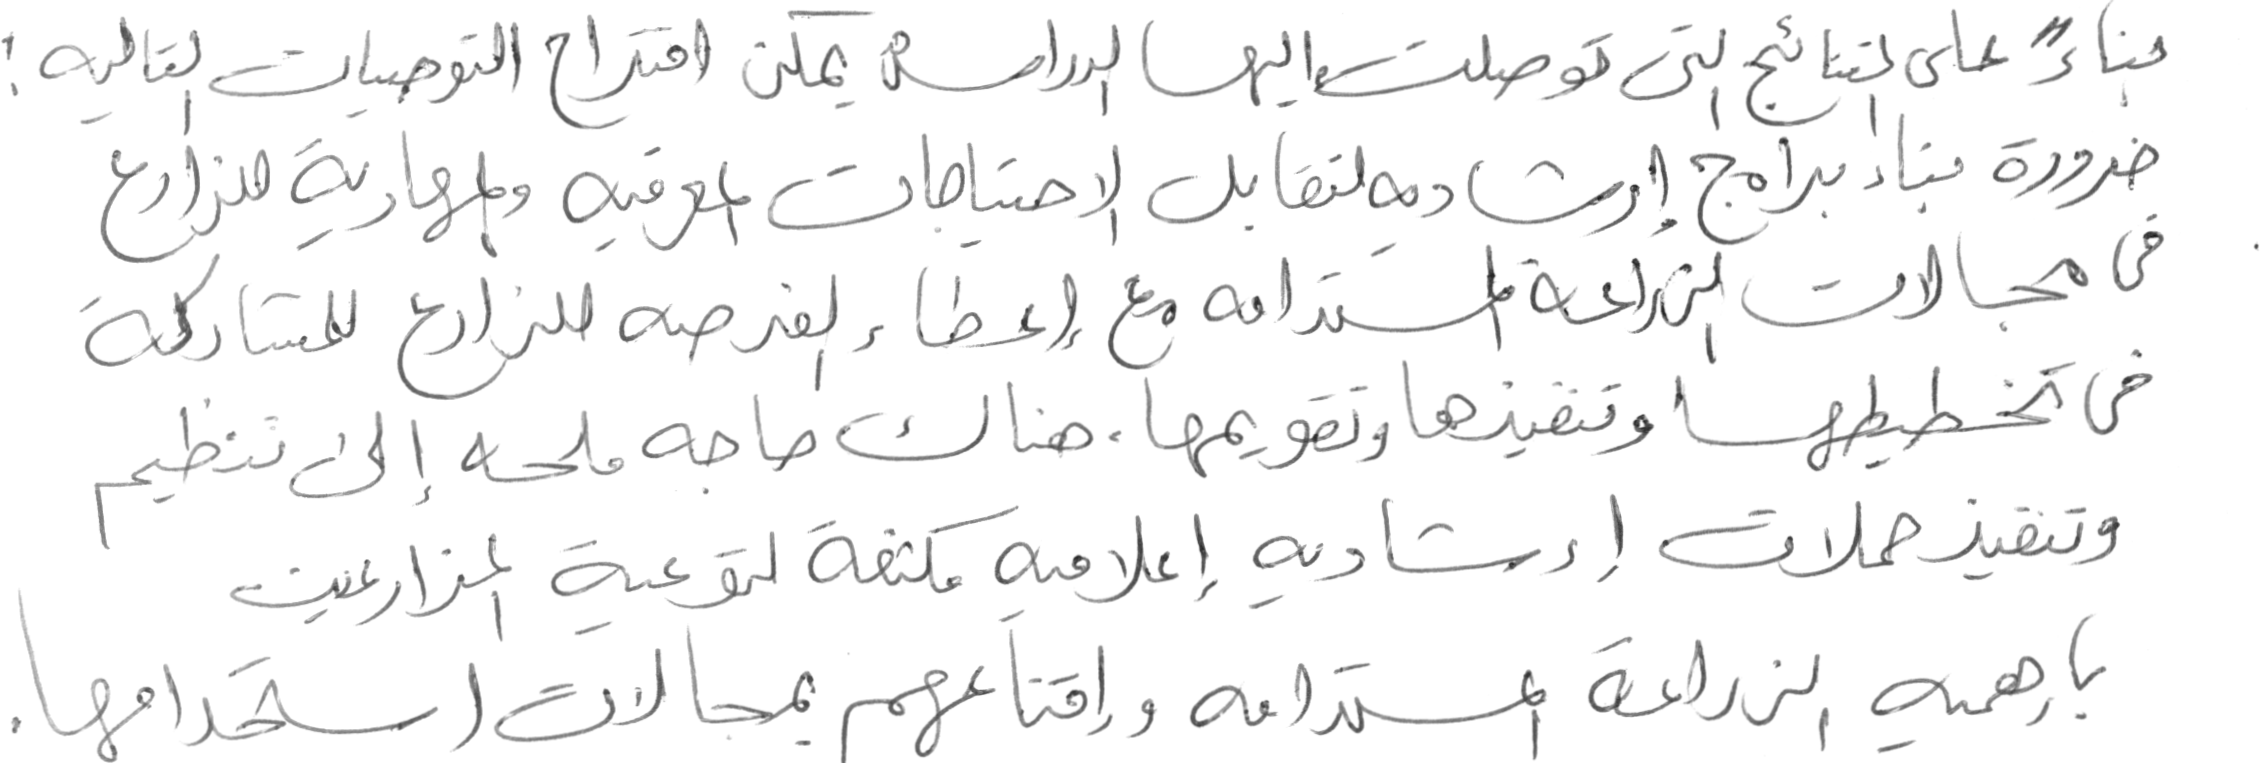 بناءً على النتائج التى توصلت إليها الدراسة يمكن اقتراح التوصيات التاليه :
ضرورة بناء برامج إرشاديه لتقابل الاحتياجات المعرفيه والمهارية للزارع
فى مجالات الزراعة المستدامه مع إعطاء الفرصه للزارع للمشاركة
فى تخطيطها وتنفيذها وتقويمها . هناك حاجه ملحه إلى تنظيم
وتنفيذ حملات إرشاديه إعلاميه مكثفة لتوعية المزارعين
بأهميه الزراعة المستدامه وإقناعهم بمجالات استخدامها .